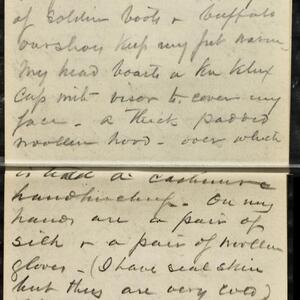 of Soldier boots & buffalo
overshoes keep my feet warm.
My head boasts a Ku Klux
Cap with visor to cover my
face. a thick padded
woollen hood. over which
is held a cashmere
handkerchief. On my
hands are a pair of
silk & a pair of woollen
gloves. (I have seal skin
but they are very cold)